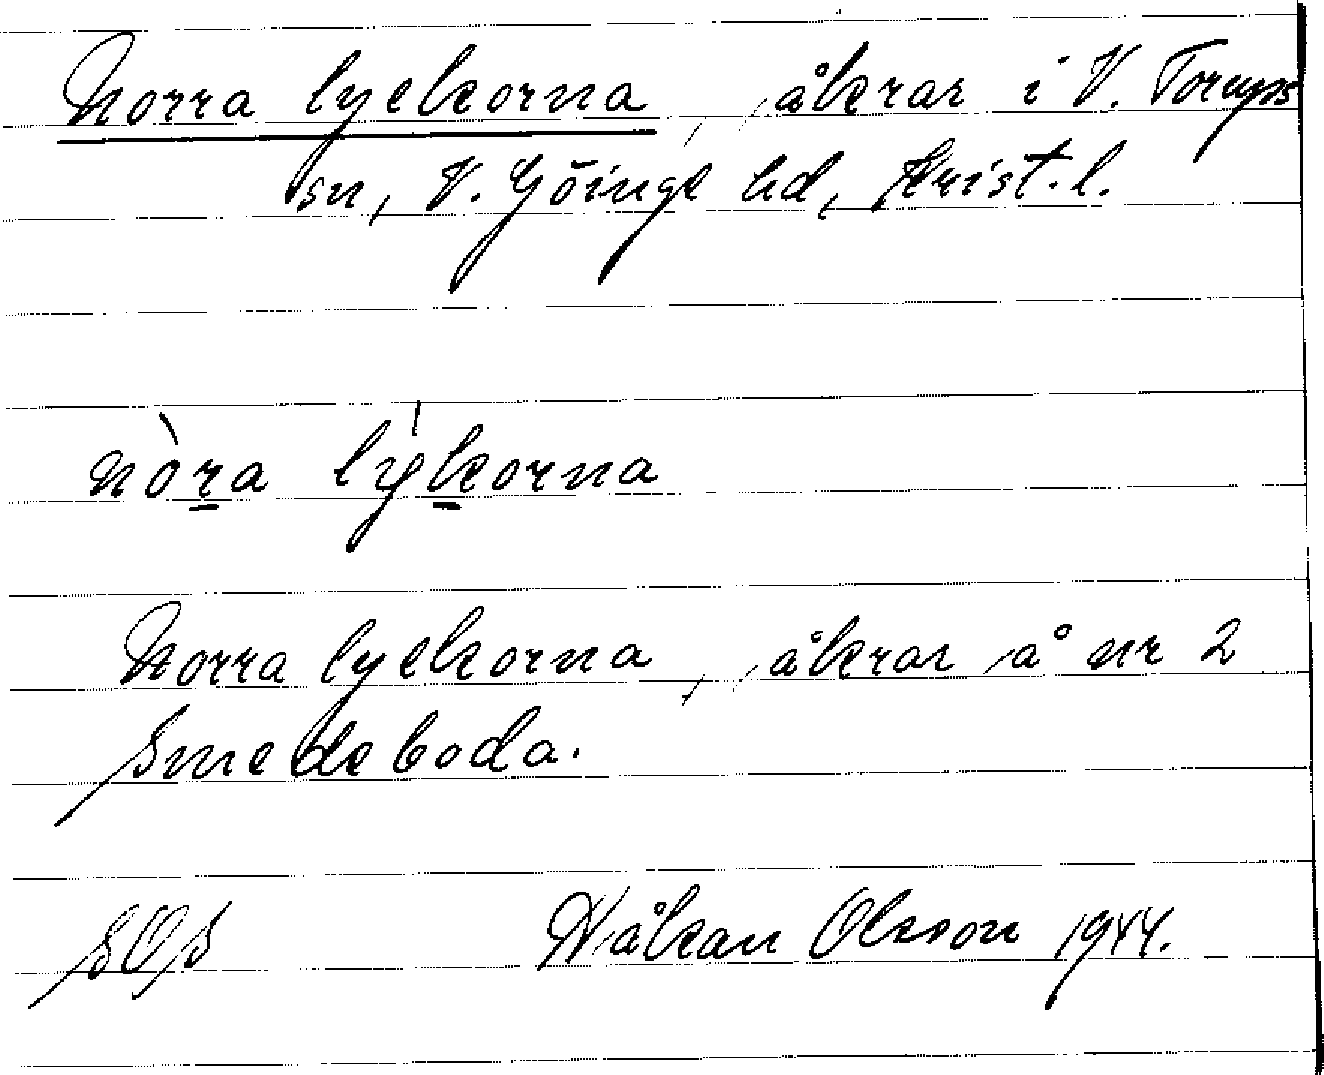 Norra lyckorna, åkrar i V. Torups
sn, V. Göinge hd, Krist. l.
nòra lýkorna
Norra lyckorna, åkrar å nr 2
Smedeboda.
SOS Håkan Olsson 1944.